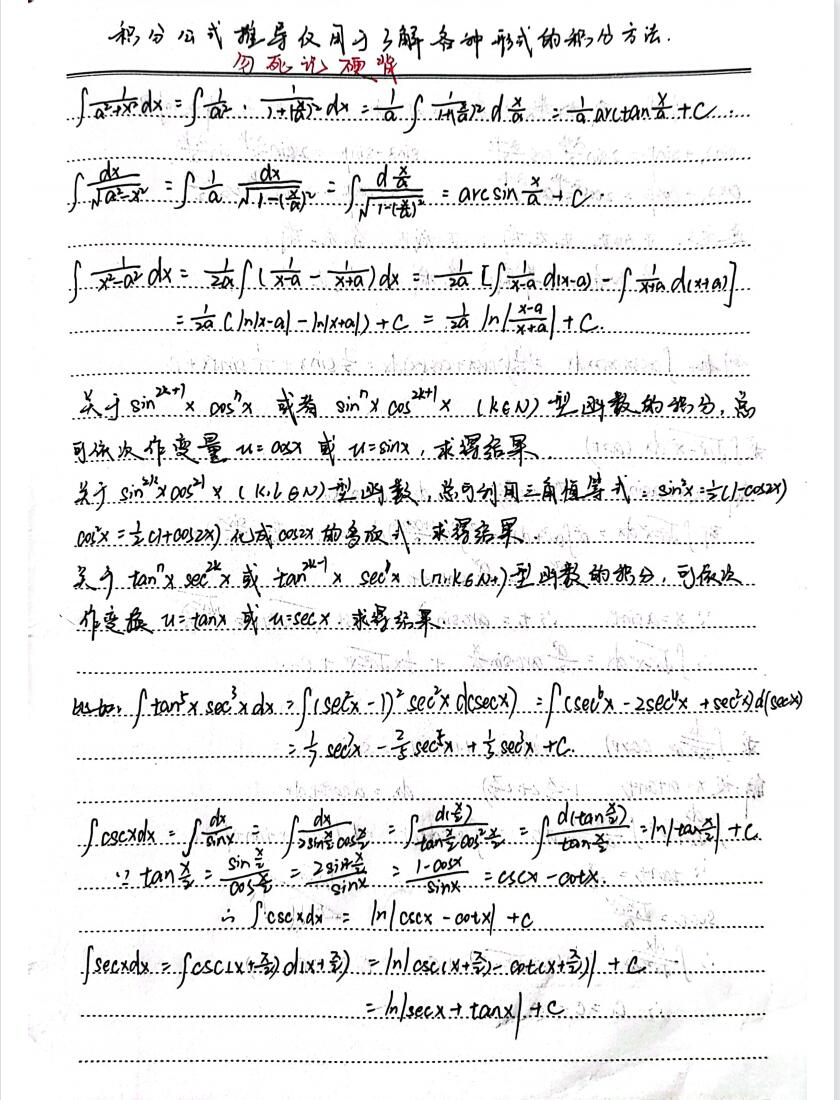 积分公式推导仅用于了解各种形式的积分方法.
勿死记硬背
∫ 1/(a²+x²) dx = ∫ 1/a² · 1/(1+(x/a)²) dx = 1/a ∫ 1/(1+(x/a)²) d x/a = 1/a arctan x/a + C
∫ dx/√(a²-x²) = ∫ 1/a dx/√(1-(x/a)²) = ∫ d x/a / √(1-(x/a)²) = arcsin x/a + C.
∫ 1/(x²-a²) dx = 1/2a ∫ (1/(x-a) - 1/(x+a)) dx = 1/2a [∫ 1/(x-a) d(x-a) - ∫ 1/(x+a) d(x+a)]
= 1/2a (ln|x-a| - ln|x+a|) + C = 1/2a ln|(x-a)/(x+a)| + C.
关于 sin^(2k+1) x cos^n x 或者 sin^n x cos^(2k+1) x (k∈N) 型函数的积分, 总
可依次作变量 u=cosx 或 u=sinx, 求得结果.
关于 sin^(2k) x cos^(2l) x (k,l∈N) 型函数, 总可利用三角恒等式: sin²x = 1/2(1-cos2x)
cos²x = 1/2(1+cos2x) 化成cos2x的多项式, 求得结果.
关于 tan^n x sec^(2k) x 或 tan^(2k-1) x sec^n x (n,k∈N+) 型函数的积分, 可依次
作变换 u=tanx 或 u=secx 求得结果
∫ tan⁵x sec³x dx = ∫ (sec²x - 1)² sec²x d(secx) = ∫ (sec⁶x - 2sec⁴x + sec²x) d(secx)
= 1/7 sec⁷x - 2/5 sec⁵x + 1/3 sec³x + C.
∫ cscx dx = ∫ dx/sinx = ∫ dx/(2sin x/2 cos x/2) = ∫ d(x/2)/(tan x/2 cos² x/2) = ∫ d(tan x/2)/(tan x/2) = ln|tan x/2| + C.
∵ tan x/2 = (sin x/2)/(cos x/2) = (2sin² x/2)/sinx = (1-cosx)/sinx = cscx - cotx.
∴ ∫ cscx dx = ln|cscx - cotx| + C
∫ secx dx = ∫ csc(x+π/2) d(x+π/2) = ln|csc(x+π/2) - cot(x+π/2)| + C.
= ln|secx + tanx| + C